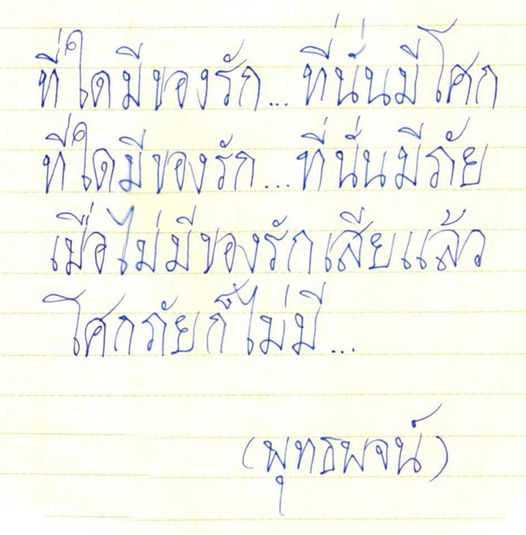 ที่ใดมีของรัก...ที่นั่นมีโศก
ที่ใดมีของรัก...ที่นั่นมีภัย
เมื่อไม่มีของรักเสียแล้ว
โศกภัยก็ไม่มี...
(พุทธพจน์)